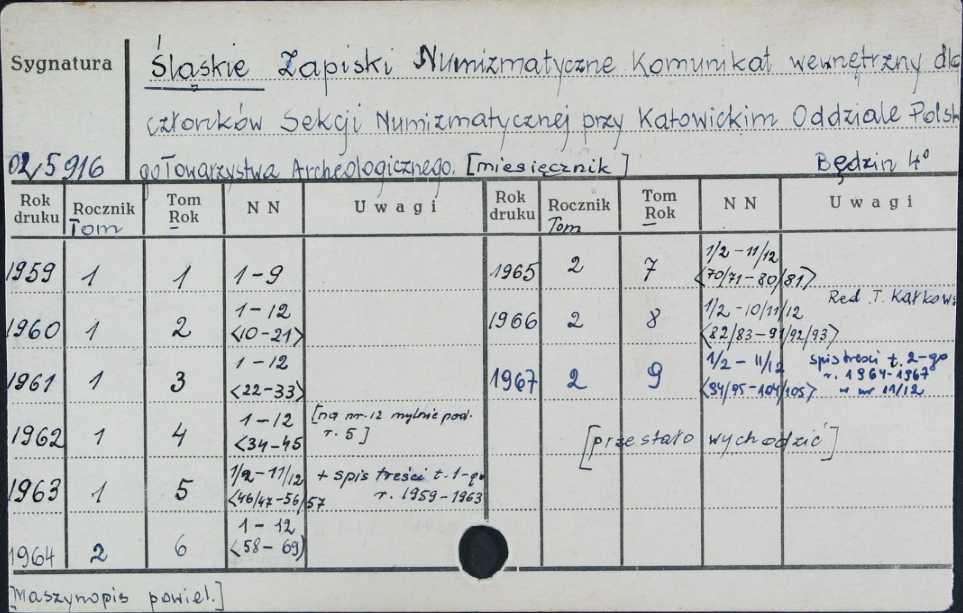 Sygnatura
Śląskie Zapiski Numizmatyczne Komunikat wewnętrzny dla
członków Sekcji Numizmatycznej przy Katowickim Oddziale Polsk
02/5916
go Towarzystwa Archeologicznego. [miesięcznik] Będzin 4°
Rok druku Rocznik Tom Tom Rok NN Uwagi Rok druku Rocznik Tom Tom Rok NN Uwagi
1959 1 1 1-9
1960 1 2 1-12 <10-21>
1961 1 3 1-12 <22-33>
1962 1 4 1-12 <34-45 [na nr. 12 mylnie pod. r. 5]
1963 1 5 1/2-11/12 <46/47-56/57 + spis treści t. 1-go r. 1959-1963
1964 2 6 1-12 <58-69>
1965 2 7 1/2-11/12 <70/71-80/81>
Red. T. Kałkows
1966 2 8 1/2-10/11/12 <82/83-91/92/93>
1967 2 9 1/2-11/12 <94/95-104/105> spis treści t. 2-go r. 1964-1967 w nr 11/12
[przestało wychodzić]
[Maszynopis powiel.]